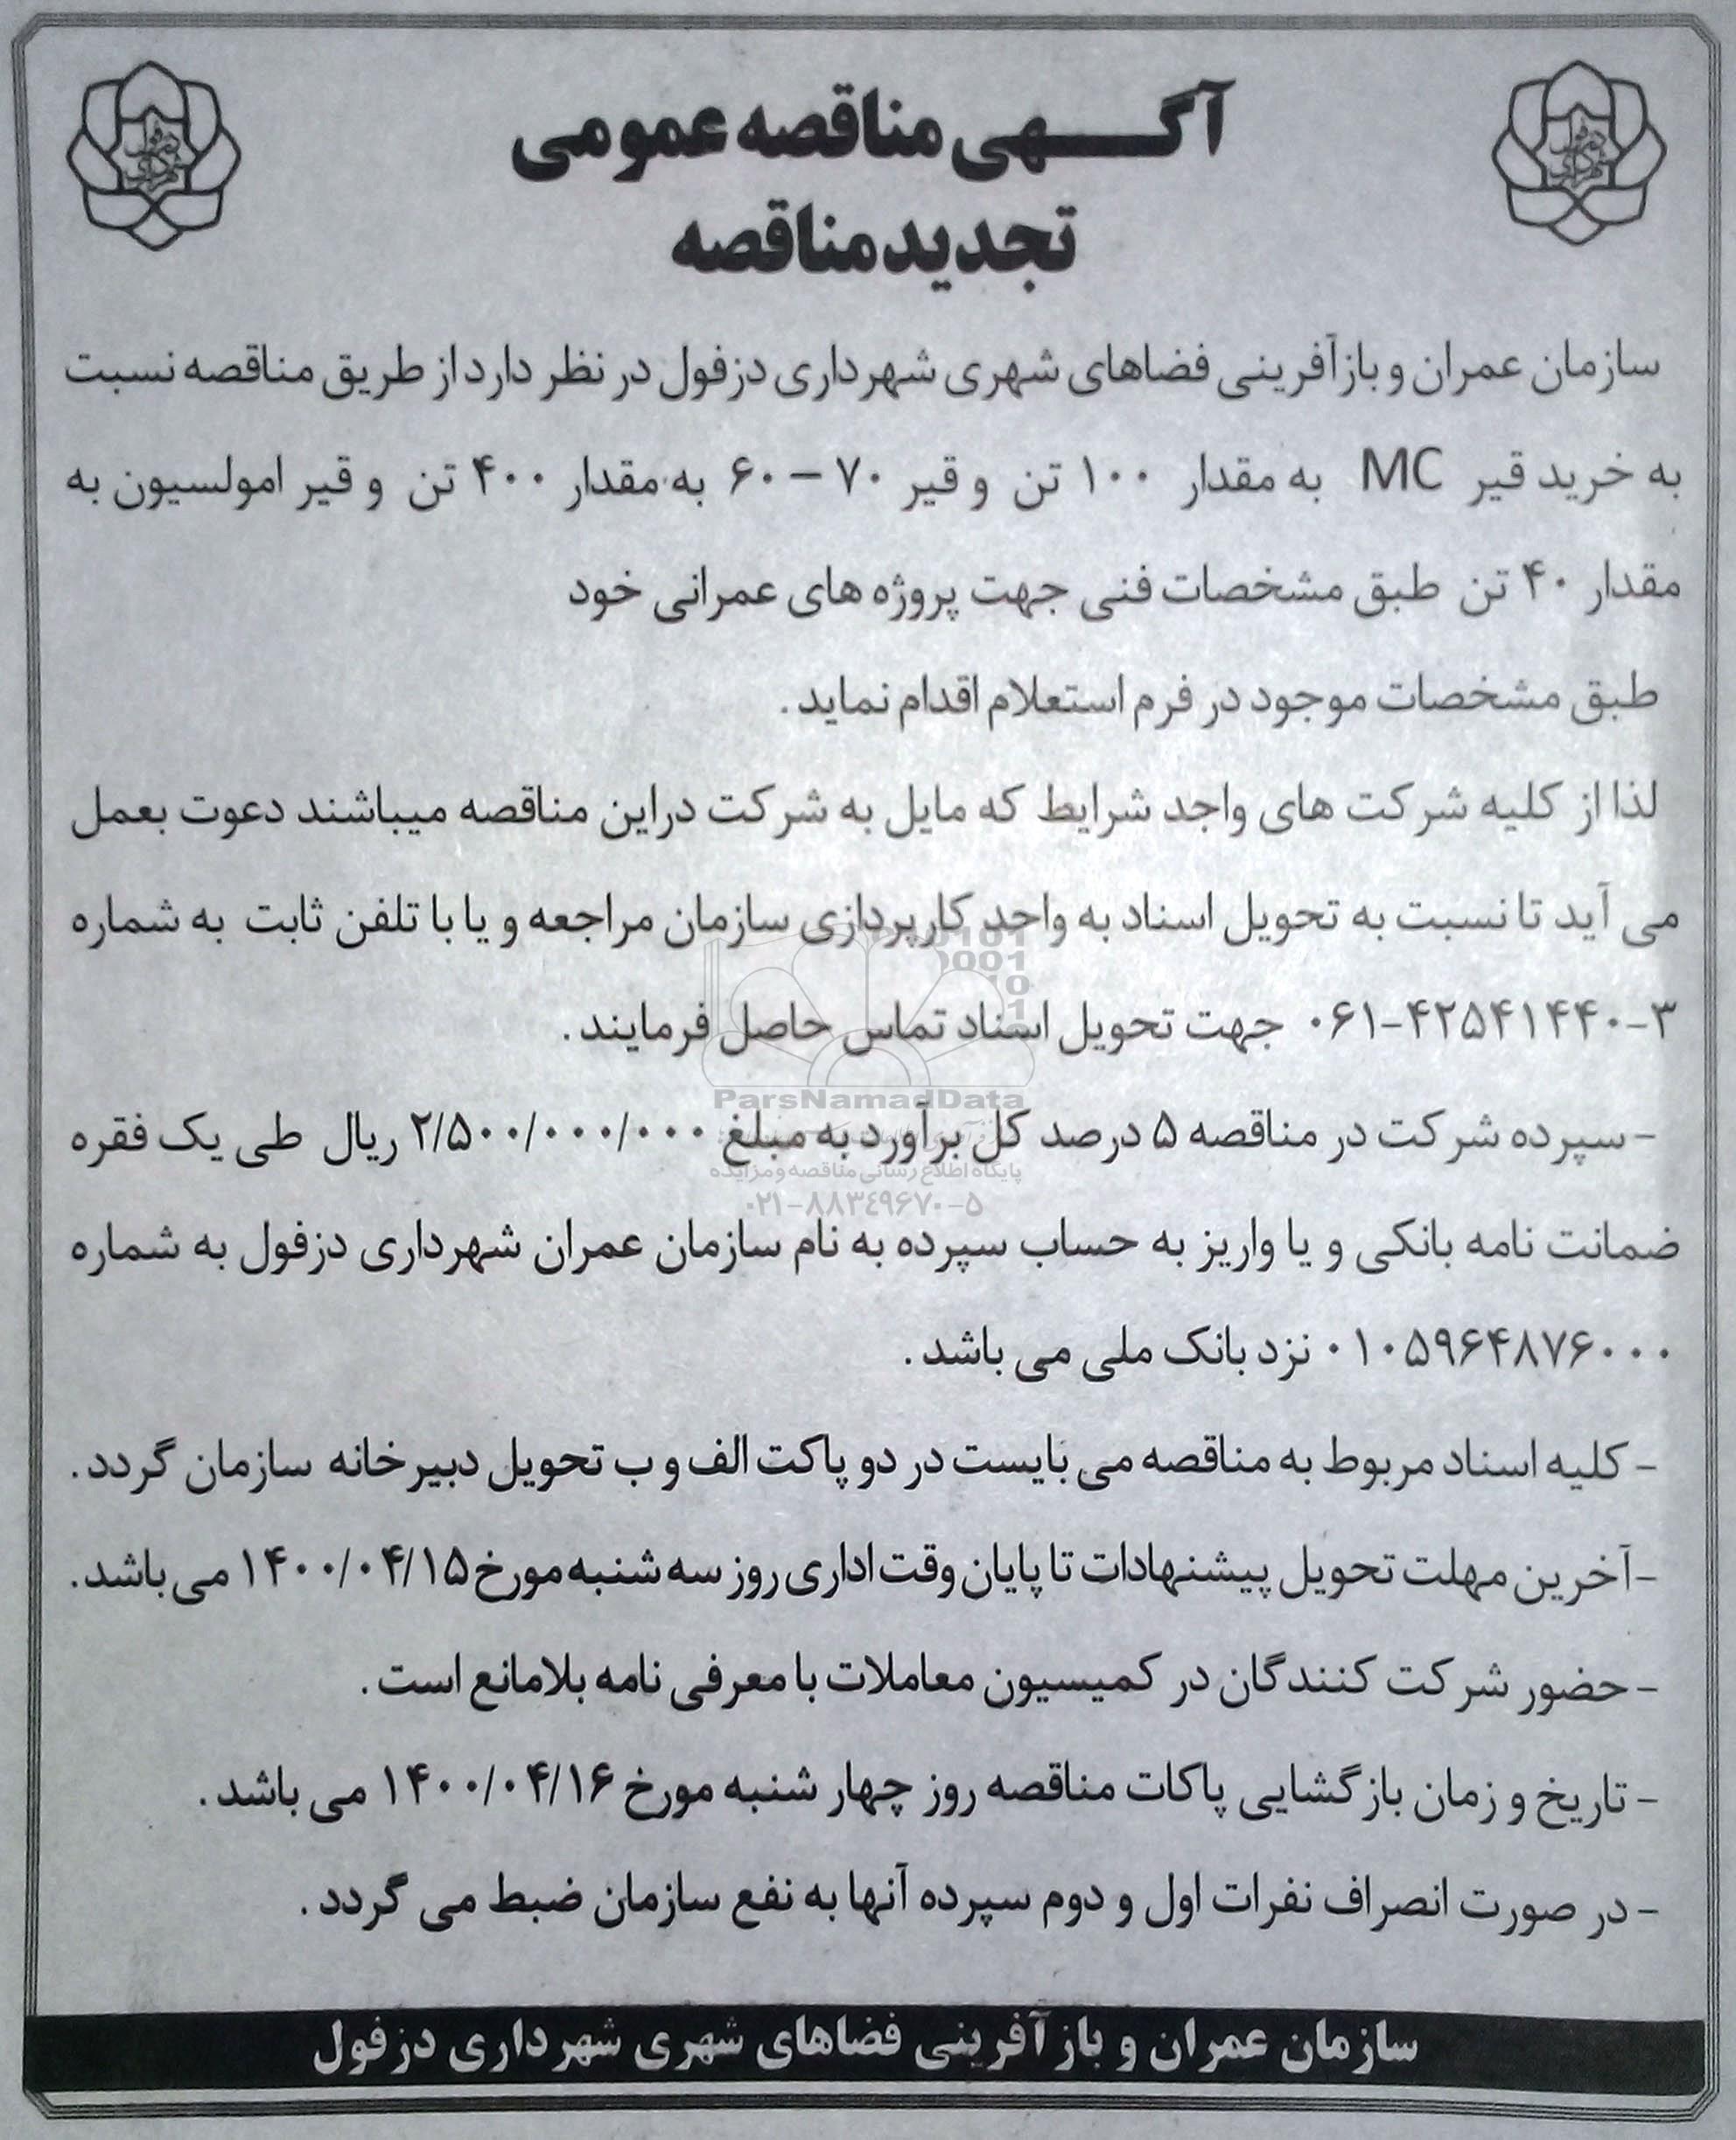 آگهی مناقصه عمومی
تجدید مناقصه
سازمان عمران و بازآفرینی فضاهای شهری شهرداری دزفول در نظر دارد از طریق مناقصه نسبت
به خرید قیر MC به مقدار ۱۰۰ تن و قیر ۷۰ – ۶۰ به مقدار ۴۰۰ تن و قیر امولسیون به
مقدار ۴۰ تن طبق مشخصات فنی جهت پروژه های عمرانی خود
طبق مشخصات موجود در فرم استعلام اقدام نماید.
لذا از کلیه شرکت های واجد شرایط که مایل به شرکت دراین مناقصه میباشند دعوت بعمل
می آید تا نسبت به تحویل اسناد به واحد کارپردازی سازمان مراجعه و یا با تلفن ثابت به شماره
۰۶۱-۴۲۵۴۱۴۴۰-۳ جهت تحویل اسناد تماس حاصل فرمایند.
ParsNamadData
- سپرده شرکت در مناقصه ۵ درصد کل برآورد به مبلغ ۲/۵۰۰/۰۰۰/۰۰۰ ریال طی یک فقره
پایگاه اطلاع رسانی مناقصه و مزایده
۰۲۱-۸۸۳۴۹۶۷۰-۵
ضمانت نامه بانکی و یا واریز به حساب سپرده به نام سازمان عمران شهرداری دزفول به شماره
۰۱۰۵۹۶۴۸۷۶۰۰۰ نزد بانک ملی می باشد.
- کلیه اسناد مربوط به مناقصه می بایست در دو پاکت الف و ب تحویل دبیرخانه سازمان گردد.
- آخرین مهلت تحویل پیشنهادات تا پایان وقت اداری روز سه شنبه مورخ ۱۴۰۰/۰۴/۱۵ می باشد.
- حضور شرکت کنندگان در کمیسیون معاملات با معرفی نامه بلامانع است.
- تاریخ و زمان بازگشایی پاکات مناقصه روز چهار شنبه مورخ ۱۴۰۰/۰۴/۱۶ می باشد.
- در صورت انصراف نفرات اول و دوم سپرده آنها به نفع سازمان ضبط می گردد.
سازمان عمران و بازآفرینی فضاهای شهری شهرداری دزفول